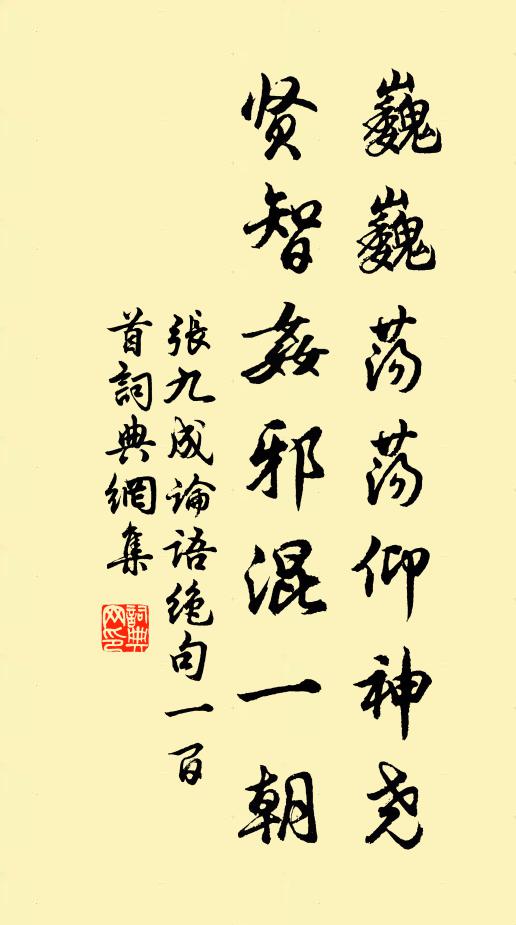 巍巍荡荡仰神尧
贤智姦邪混一朝
張九成論語绝句一百
首詞典網集
詞典网印